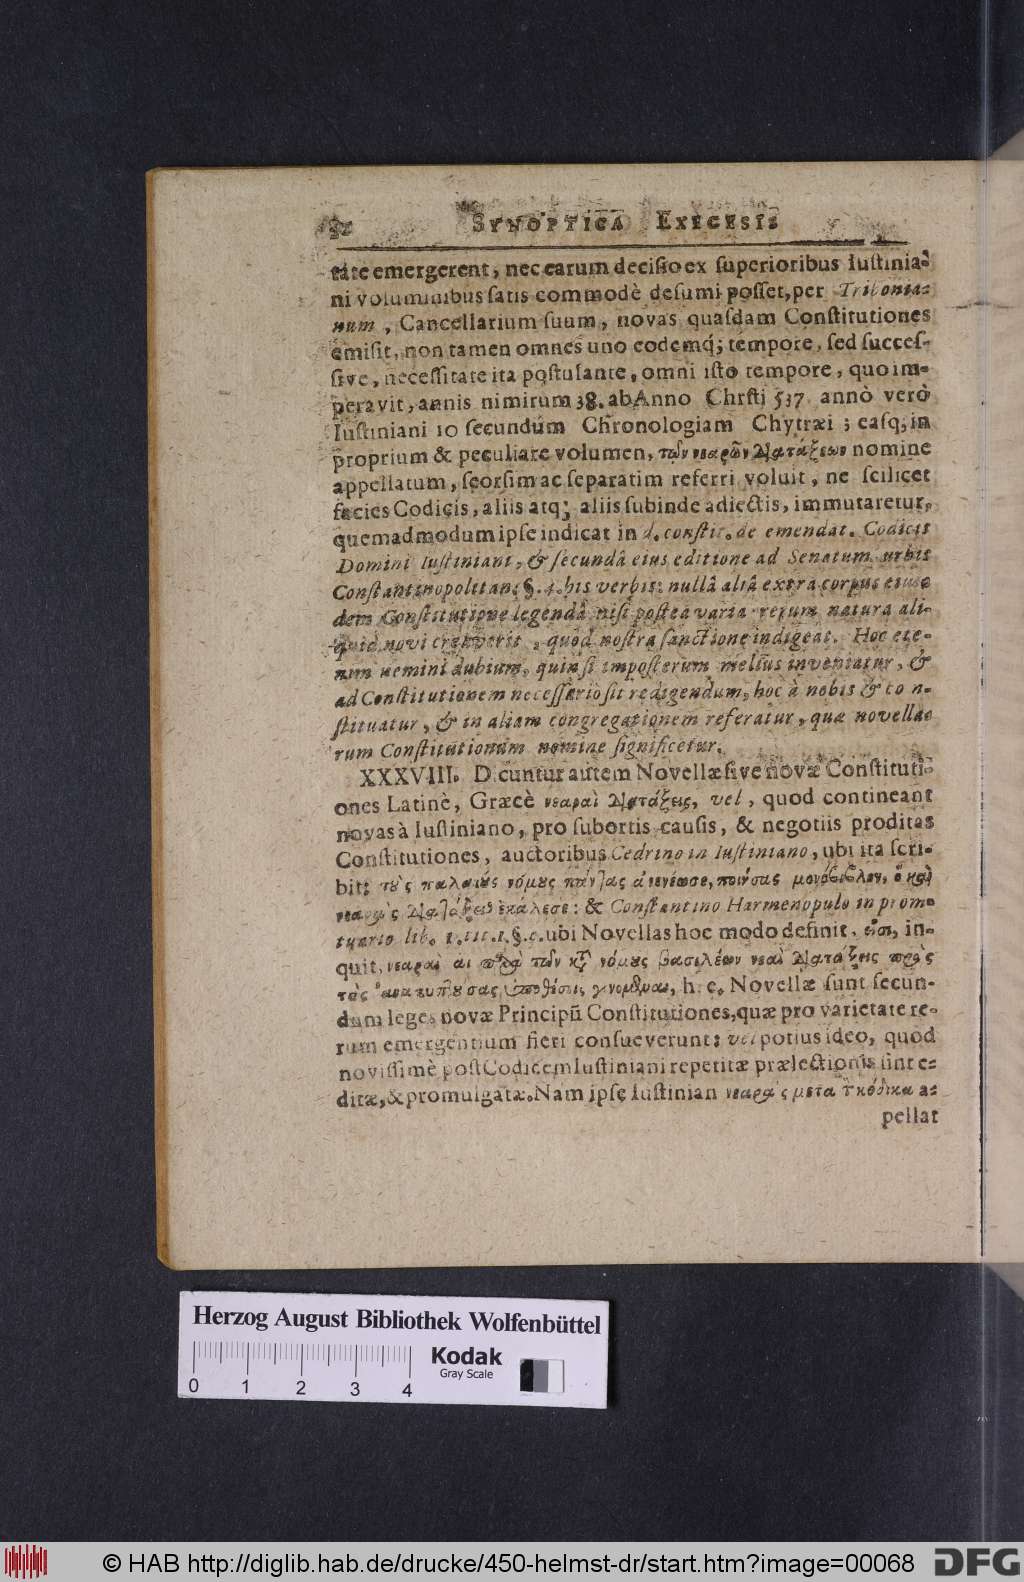 SYNOPTICA EXEGESIS
tate emergerent, nec earum decisio ex superioribus Iustinia-
ni voluminibus satis commodè desumi posset, per Tribonia-
num, Cancellarium suum, novas quasdam Constitutiones
emisit, non tamen omnes uno eodemq́; tempore, sed succes-
sive, necessitate ita postulante, omni isto tempore, quo im-
peravit, annis nimirum 38. ab Anno Chrsti 537 annò verò
Iustiniani 10 secundúm Chronologiam Chytræi; easq; in
proprium & peculiare volumen, τῶν νεαρῶν διατάξεων nomine
appellatum, seorsim ac separatim referri voluit, ne scilicet
facies Codicis, aliis atq; aliis subinde adiectis, immutaretur,
quemadmodum ipse indicat in d. constit. de emendat. Codicis
Domini Iustiniani, & secundâ eius editione ad Senatum urbis
Constantinopolitan. §. 4. his verbis: nullâ aliâ extra corpus eius-
dem Constitutione legendâ nisi postea varia rerum natura ali-
quid novi creaverit, quod nostra sanctione indigeat. Hoc ete-
nim nemini dubium, quin si imposterum melius inveniatur, &
ad Constitutionem necessario sit redigendum, hoc à nobis & co n-
stituatur, & in aliam congregationem referatur, quæ novella-
rum Constitutionum nomine significetur.
XXXVIII. Dicuntur autem Novellæ sive novæ Constituti-
ones Latinè, Græcè νεαραὶ διατάξεις, vel, quod contineant
novas à Iustiniano, pro subortis causis, & negotiis proditas
Constitutiones, auctoribus Cedrino in Iustiniano, ubi ita scri-
bit: τοὺς παλαιοὺς νόμους πάντας ἀνενέωσε, ποιήσας μονόβιβλον, ὃ καὶ
νεαρὰς διατάξεις ἐκάλεσε: & Constantino Harmenopulo in prom-
tuario lib. 1. tit. 1. §. ubi Novellas hoc modo definit, εἰσι, in-
quit, νεαραὶ αἱ παρὰ τῶν κτ νόμους βασιλέων νεαὶ διατάξεις πρὸς
τὰς ἀνακυπτούσας ὑποθέσεις γινόμεναι, h. e. Novellæ sunt secun-
dum leges novæ Principũ Constitutiones, quæ pro varietate re-
rum emergentium fieri consueverunt: vel potius ideo, quod
novissimè post Codicem Iustiniani repetitæ prælectionis sint e-
ditæ, & promulgatæ. Nam ipse Iustinian νεαρὰς μετὰ τ κόδικα a-
pellat
Herzog August Bibliothek Wolfenbüttel
0 1 2 3 4
Kodak
Gray Scale
© HAB http://diglib.hab.de/drucke/450-helmst-dr/start.htm?image=00068
DFG